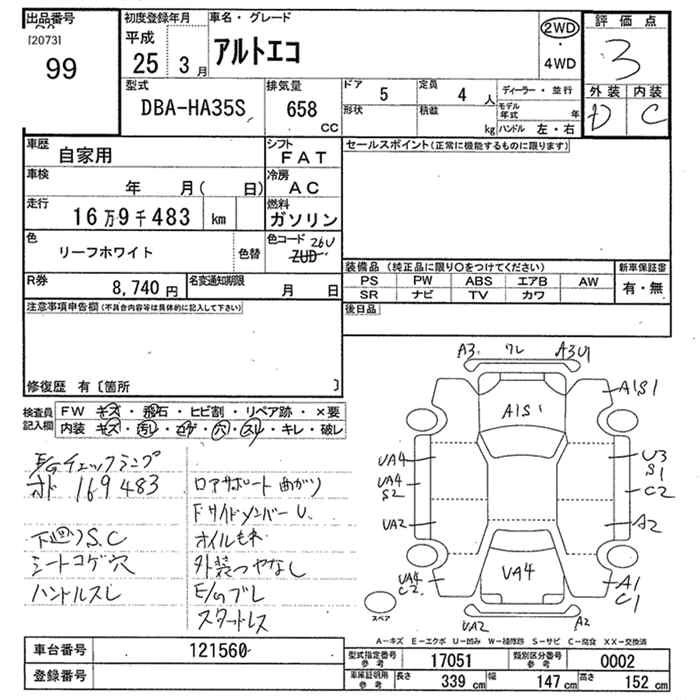 出品番号
[2073]
99
初度登録年月
平成
25 3 月
車名・グレード
アルトエコ
2WD
・
4WD
評価点
3
外装 内装
D C
型式
DBA-HA35S
排気量
658
CC
ドア
5
定員
4 人
形状
積載
kg
ディーラー・並行
モデル年式 年
ハンドル 左・右
車歴
自家用
シフト
FAT
車検
年 月( 日)
冷房
AC
走行
16万9千483 km
燃料
ガソリン
色
リーフホワイト
色替
色コード 26U
ZUD
R券
8,740 円
名変通知期限
月 日
セールスポイント(正常に機能するものに限ります)
装備品 (純正品に限り○をつけてください)
PS PW ABS エアB AW
SR ナビ TV カワ
新車保証書
有・無
後日品
注意事項申告欄(不具合内容等は具体的に記入して下さい)
修復歴 有〔箇所 〕
検査員
記入欄
FW キズ・飛石・ヒビ割・リペア跡・×要
内装 キズ・汚レ・コゲ・穴・スレ・キレ・破レ
E/Gチェックランプ
オド 169483
下廻りS.C
シートコゲ穴
ハンドルスレ
ロアサポート曲がり
Fサイドメンバー U.
オイルもれ
外装つやなし
E/Gブレ
スタートレス
A3 ワレ A3U1
A1S1
A1S1
UA4
U3
S1
UA4
S2
C2
UA2
A2
UA4
UA4
C2
A1
C1
スペア
UA2
A2
A-キズ E-エクボ U-凹み W-補修跡 S-サビ C-腐食 XX-交換済
車台番号
121560
登録番号
型式指定番号
参考
17051
類別区分番号
参考
0002
車庫証明用
参考
長さ 339 cm 幅 147 cm 高さ 152 cm